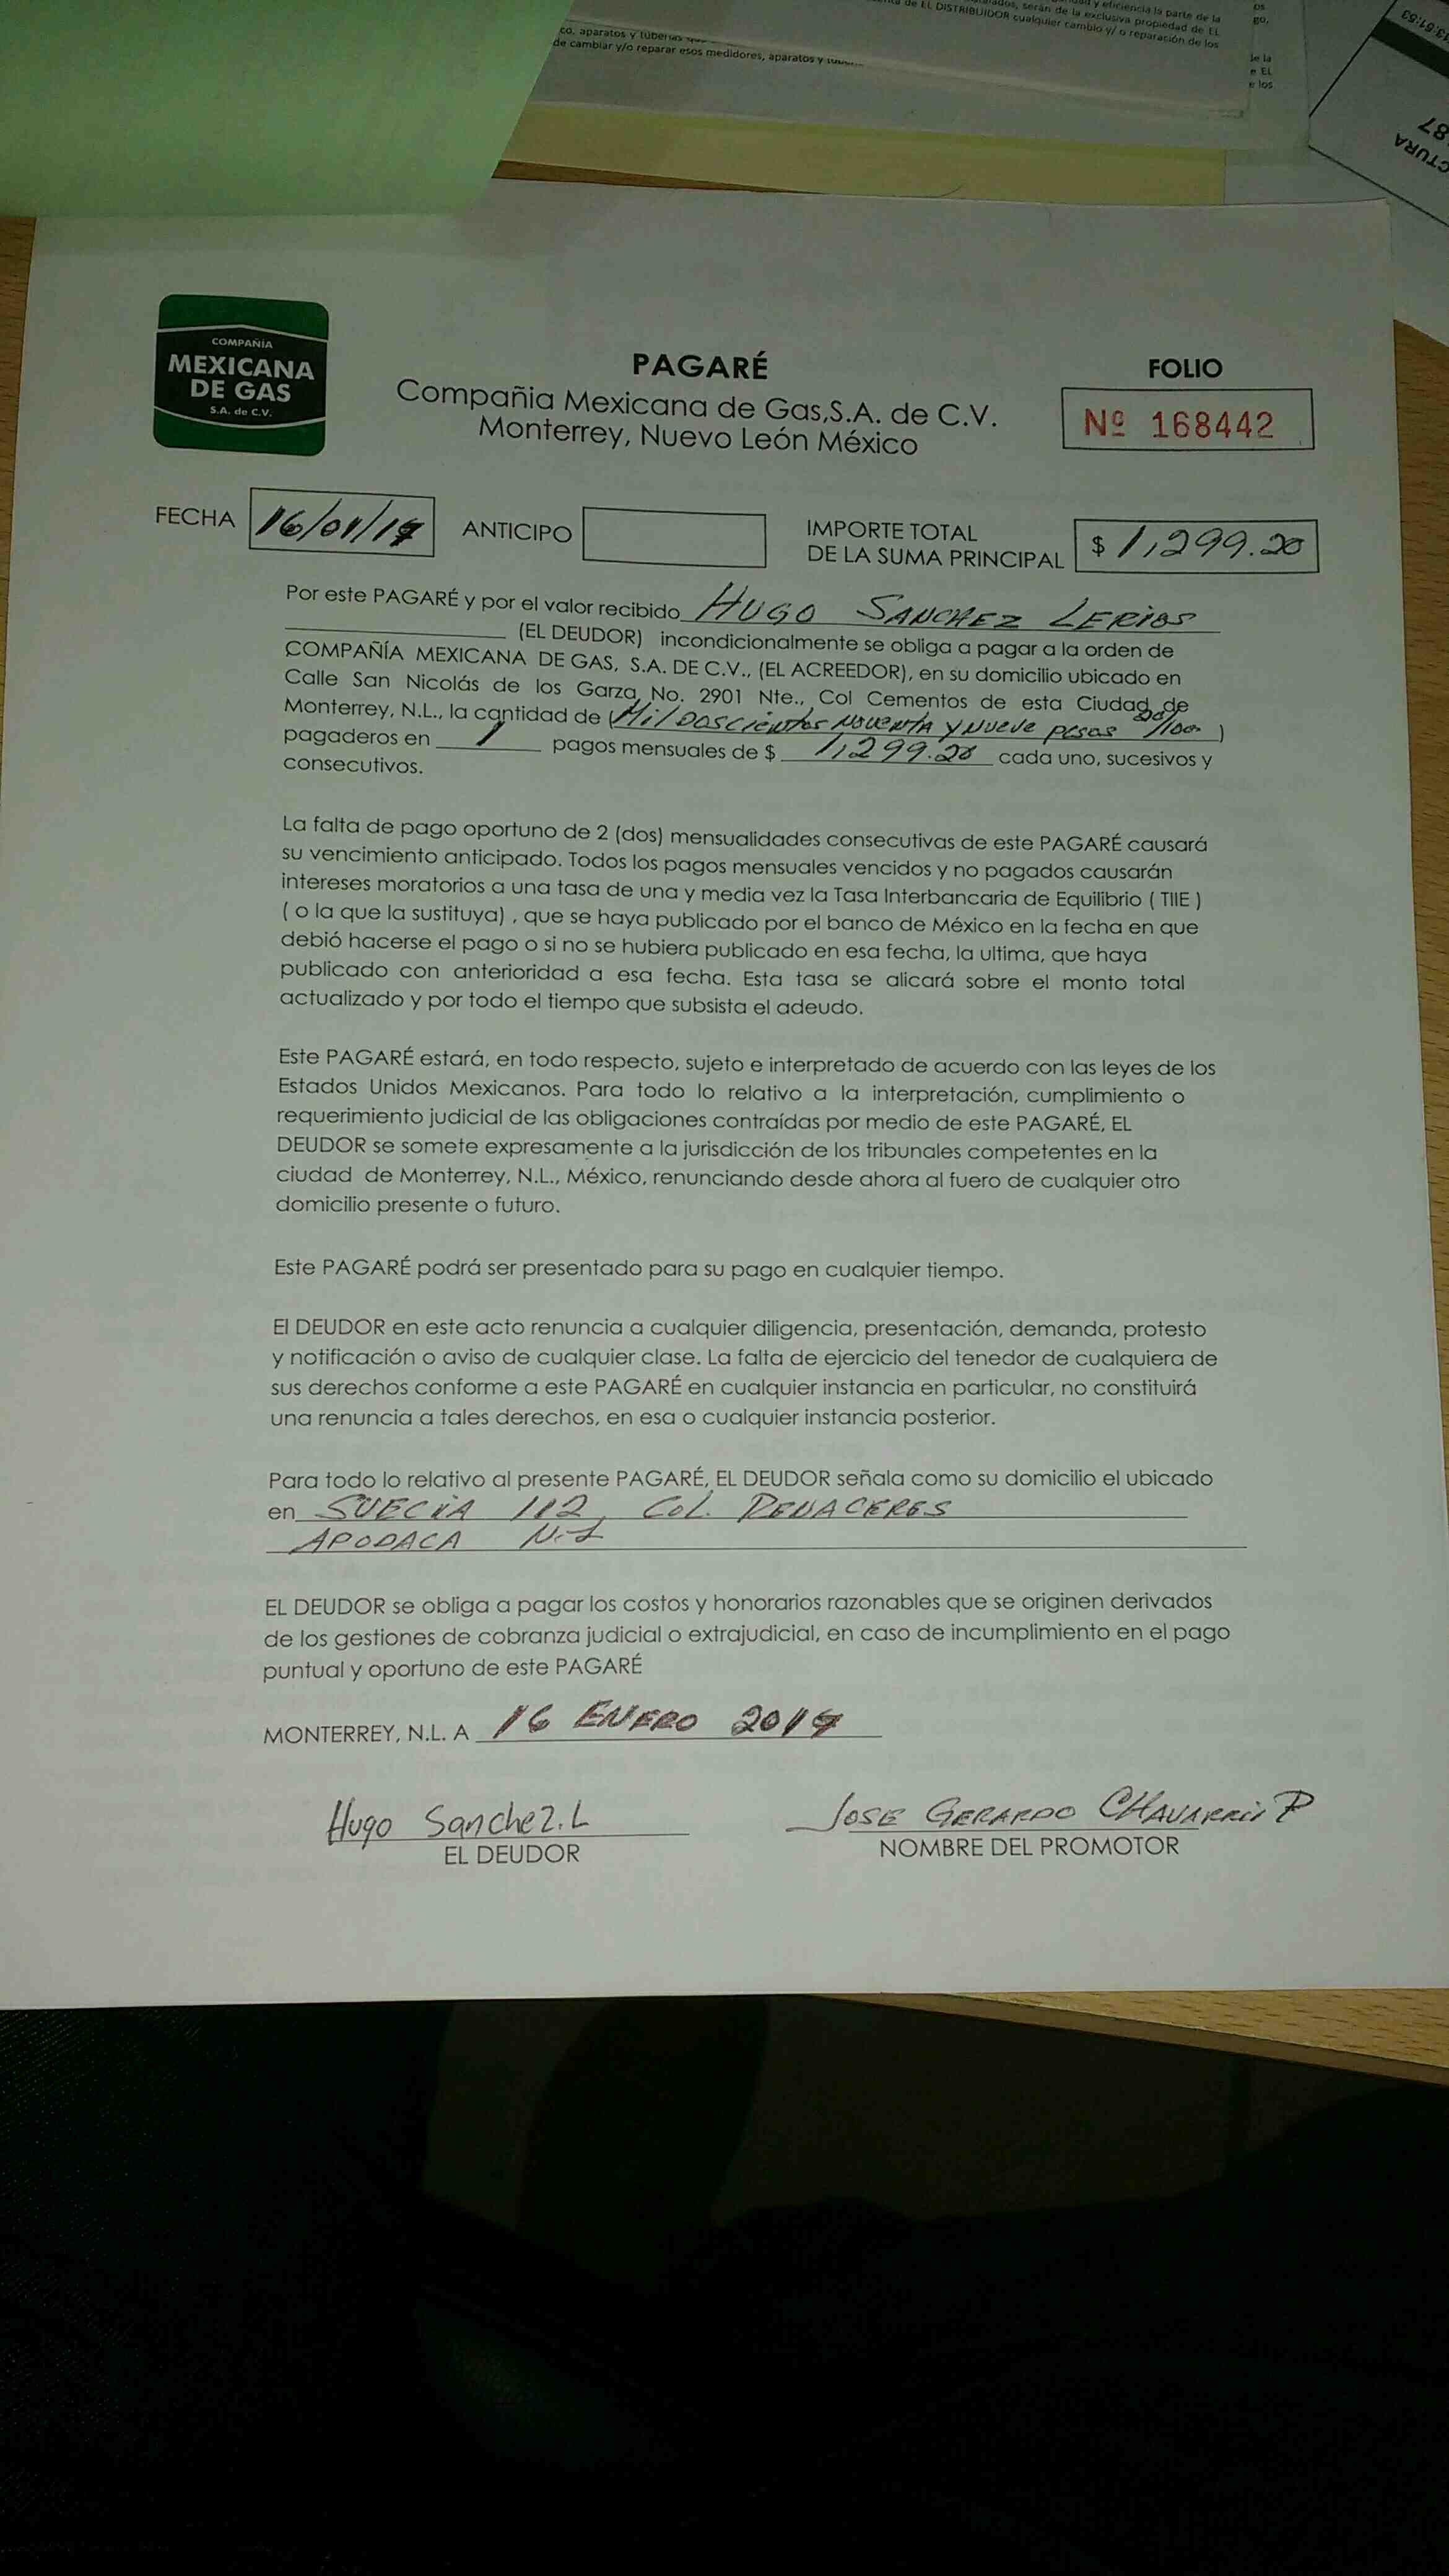 co, aparatos y tuberías
de cambiar y/o reparar esos medidores, aparatos y
y eficiencia la parte de la
serán de la exclusiva propiedad de EL
de EL DISTRIBUIDOR cualquier cambio y/ o reparación de los
os
go,
de la
e EL
e los
13:61:53
87
CTURA
COMPAÑÍA
MEXICANA
DE GAS
S.A. de C.V.
PAGARÉ
Compañia Mexicana de Gas,S.A. de C.V.
Monterrey, Nuevo León México
FOLIO
Nº 168442
FECHA 16/01/19
ANTICIPO
IMPORTE TOTAL
DE LA SUMA PRINCIPAL $ 1,299.20
Por este PAGARÉ y por el valor recibido HUGO SANCHEZ LERIOS
(EL DEUDOR) incondicionalmente se obliga a pagar a la orden de
COMPAÑÍA MEXICANA DE GAS, S.A. DE C.V., (EL ACREEDOR), en su domicilio ubicado en
Calle San Nicolás de los Garza, No. 2901 Nte., Col Cementos de esta Ciudad de
Monterrey, N.L., la cantidad de (Mil Doscientos Noventa y Nueve pesos 20/100 )
pagaderos en 1 pagos mensuales de $ 1,299.20 cada uno, sucesivos y
consecutivos.
La falta de pago oportuno de 2 (dos) mensualidades consecutivas de este PAGARÉ causará
su vencimiento anticipado. Todos los pagos mensuales vencidos y no pagados causarán
intereses moratorios a una tasa de una y media vez la Tasa Interbancaria de Equilibrio ( TIIE )
( o la que la sustituya) , que se haya publicado por el banco de México en la fecha en que
debió hacerse el pago o si no se hubiera publicado en esa fecha, la ultima, que haya
publicado con anterioridad a esa fecha. Esta tasa se alicará sobre el monto total
actualizado y por todo el tiempo que subsista el adeudo.
Este PAGARÉ estará, en todo respecto, sujeto e interpretado de acuerdo con las leyes de los
Estados Unidos Mexicanos. Para todo lo relativo a la interpretación, cumplimiento o
requerimiento judicial de las obligaciones contraídas por medio de este PAGARÉ, EL
DEUDOR se somete expresamente a la jurisdicción de los tribunales competentes en la
ciudad de Monterrey, N.L., México, renunciando desde ahora al fuero de cualquier otro
domicilio presente o futuro.
Este PAGARÉ podrá ser presentado para su pago en cualquier tiempo.
El DEUDOR en este acto renuncia a cualquier diligencia, presentación, demanda, protesto
y notificación o aviso de cualquier clase. La falta de ejercicio del tenedor de cualquiera de
sus derechos conforme a este PAGARÉ en cualquier instancia en particular, no constituirá
una renuncia a tales derechos, en esa o cualquier instancia posterior.
Para todo lo relativo al presente PAGARÉ, EL DEUDOR señala como su domicilio el ubicado
en SUECIA 112, COL. RENACERES
APODACA N.L
EL DEUDOR se obliga a pagar los costos y honorarios razonables que se originen derivados
de los gestiones de cobranza judicial o extrajudicial, en caso de incumplimiento en el pago
puntual y oportuno de este PAGARÉ
MONTERREY, N.L. A 16 ENERO 2019
Hugo Sanchez.L
EL DEUDOR
JOSE GERARDO CHAVARRIA P
NOMBRE DEL PROMOTOR